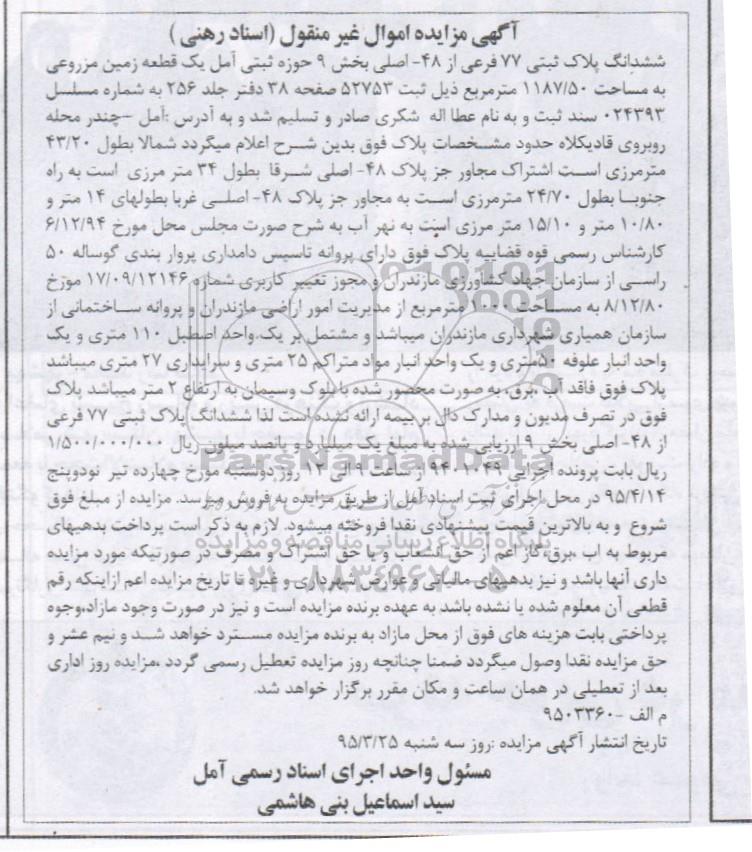 آگهی مزایده اموال غیر منقول (اسناد رهنی)
ششدانگ پلاک ثبتی ۷۷ فرعی از ۴۸- اصلی بخش ۹ حوزه ثبتی آمل یک قطعه زمین مزروعی
به مساحت ۱۱۸۷/۵۰ مترمربع ذیل ثبت ۵۲۷۵۳ صفحه ۳۸ دفتر جلد ۲۵۶ به شماره مسلسل
۰۲۴۳۹۳ سند ثبت و به نام عطا اله شکری صادر و تسلیم شد و به آدرس :آمل –چندر محله
روبروی قادیکلاه حدود مشخصات پلاک فوق بدین شرح اعلام میگردد شمالا بطول ۴۳/۲۰
مترمرزی است اشتراک مجاور جز پلاک ۴۸- اصلی شرقا بطول ۳۴ متر مرزی است به راه
جنوبا بطول ۲۴/۷۰ مترمرزی است به مجاور جز پلاک ۴۸- اصلی غربا بطولهای ۱۴ متر و
۱۰/۸۰ متر و ۱۵/۱۰ متر مرزی است به نهر آب به شرح صورت مجلس محل مورخ ۶/۱۲/۹۴
کارشناس رسمی قوه قضاییه پلاک فوق دارای پروانه تاسیس دامداری پروار بندی گوساله ۵۰
راسی از سازمان جهاد کشاورزی مازندران و مجوز تغییر کاربری شماره ۱۷/۰۹/۱۲۱۴۶ مورخ
۸/۱۲/۸۰ به مساحت مترمربع از مدیریت امور اراضی مازندران و پروانه ساختمانی از
سازمان همیاری شهرداری مازندران میباشد و مشتمل بر یک واحد اصطبل ۱۱۰ متری و یک
واحد انبار علوفه ۵۰متری و یک واحد انبار مواد متراکم ۲۵ متری و سرایداری ۲۷ متری میباشد
پلاک فوق فاقد آب ،برق، به صورت محصور شده با بلوک وسیمان به ارتفاع ۲ متر میباشد پلاک
فوق در تصرف مدیون و مدارک دال بر بیمه ارائه نشده است لذا ششدانگ پلاک ثبتی ۷۷ فرعی
از ۴۸- اصلی بخش ۹ ارزیابی شده به مبلغ یک میلیارد و پانصد میلیون ریال ۱/۵۰۰/۰۰۰/۰۰۰
ریال بابت پرونده اجرایی ۹۴۰۱۰۴۹ از ساعت ۹ الی ۱۲ روز دوشنبه مورخ چهارده تیر نودوپنج
۹۵/۴/۱۴ در محل اجرای ثبت اسناد آمل از طریق مزایده به فروش میرسد. مزایده از مبلغ فوق
شروع و به بالاترین قیمت پیشنهادی نقدا فروخته میشود. لازم به ذکر است پرداخت بدهیهای
مربوط به اب ،برق،گاز اعم از حق انشعاب و یا حق اشتراک و مصرف در صورتیکه مورد مزایده
داری آنها باشد و نیز بدهیهای مالیاتی و عوارض شهرداری و غیره تا تاریخ مزایده اعم ازاینکه رقم
قطعی آن معلوم شده یا نشده باشد به عهده برنده مزایده است و نیز در صورت وجود مازاد،وجوه
پرداختی بابت هزینه های فوق از محل مازاد به برنده مزایده مسترد خواهد شد و نیم عشر و
حق مزایده نقدا وصول میگردد ضمنا چنانچه روز مزایده تعطیل رسمی گردد ،مزایده روز اداری
بعد از تعطیلی در همان ساعت و مکان مقرر برگزار خواهد شد.
م الف -۹۵۰۳۳۶۰
تاریخ انتشار آگهی مزایده :روز سه شنبه ۹۵/۳/۲۵
مسئول واحد اجرای اسناد رسمی آمل
سید اسماعیل بنی هاشمی
ParsNamadData
پایگاه اطلاع رسانی مناقصه و مزایده